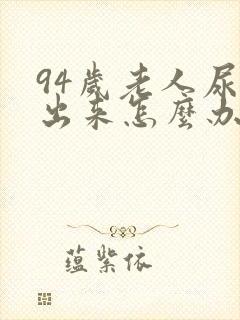 94歲老人尿
出来怎麼办
蕴紫依